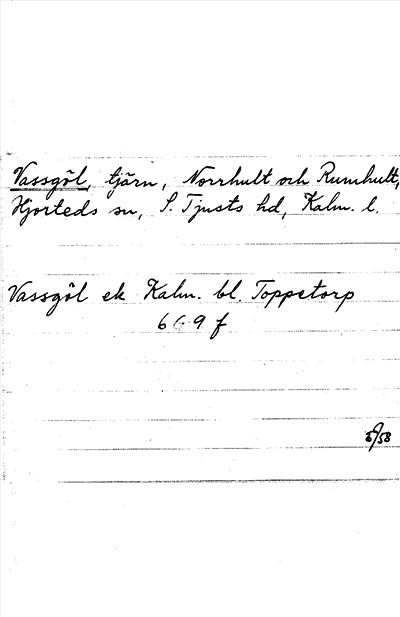 Vassgöl, tjärn, Norrhult och Rumhult,
Hjorteds sn, S. Tjusts hd, Kalm. l.
Vassgöl ek Kalm. bl. Toppetorp
6G9 f
/58